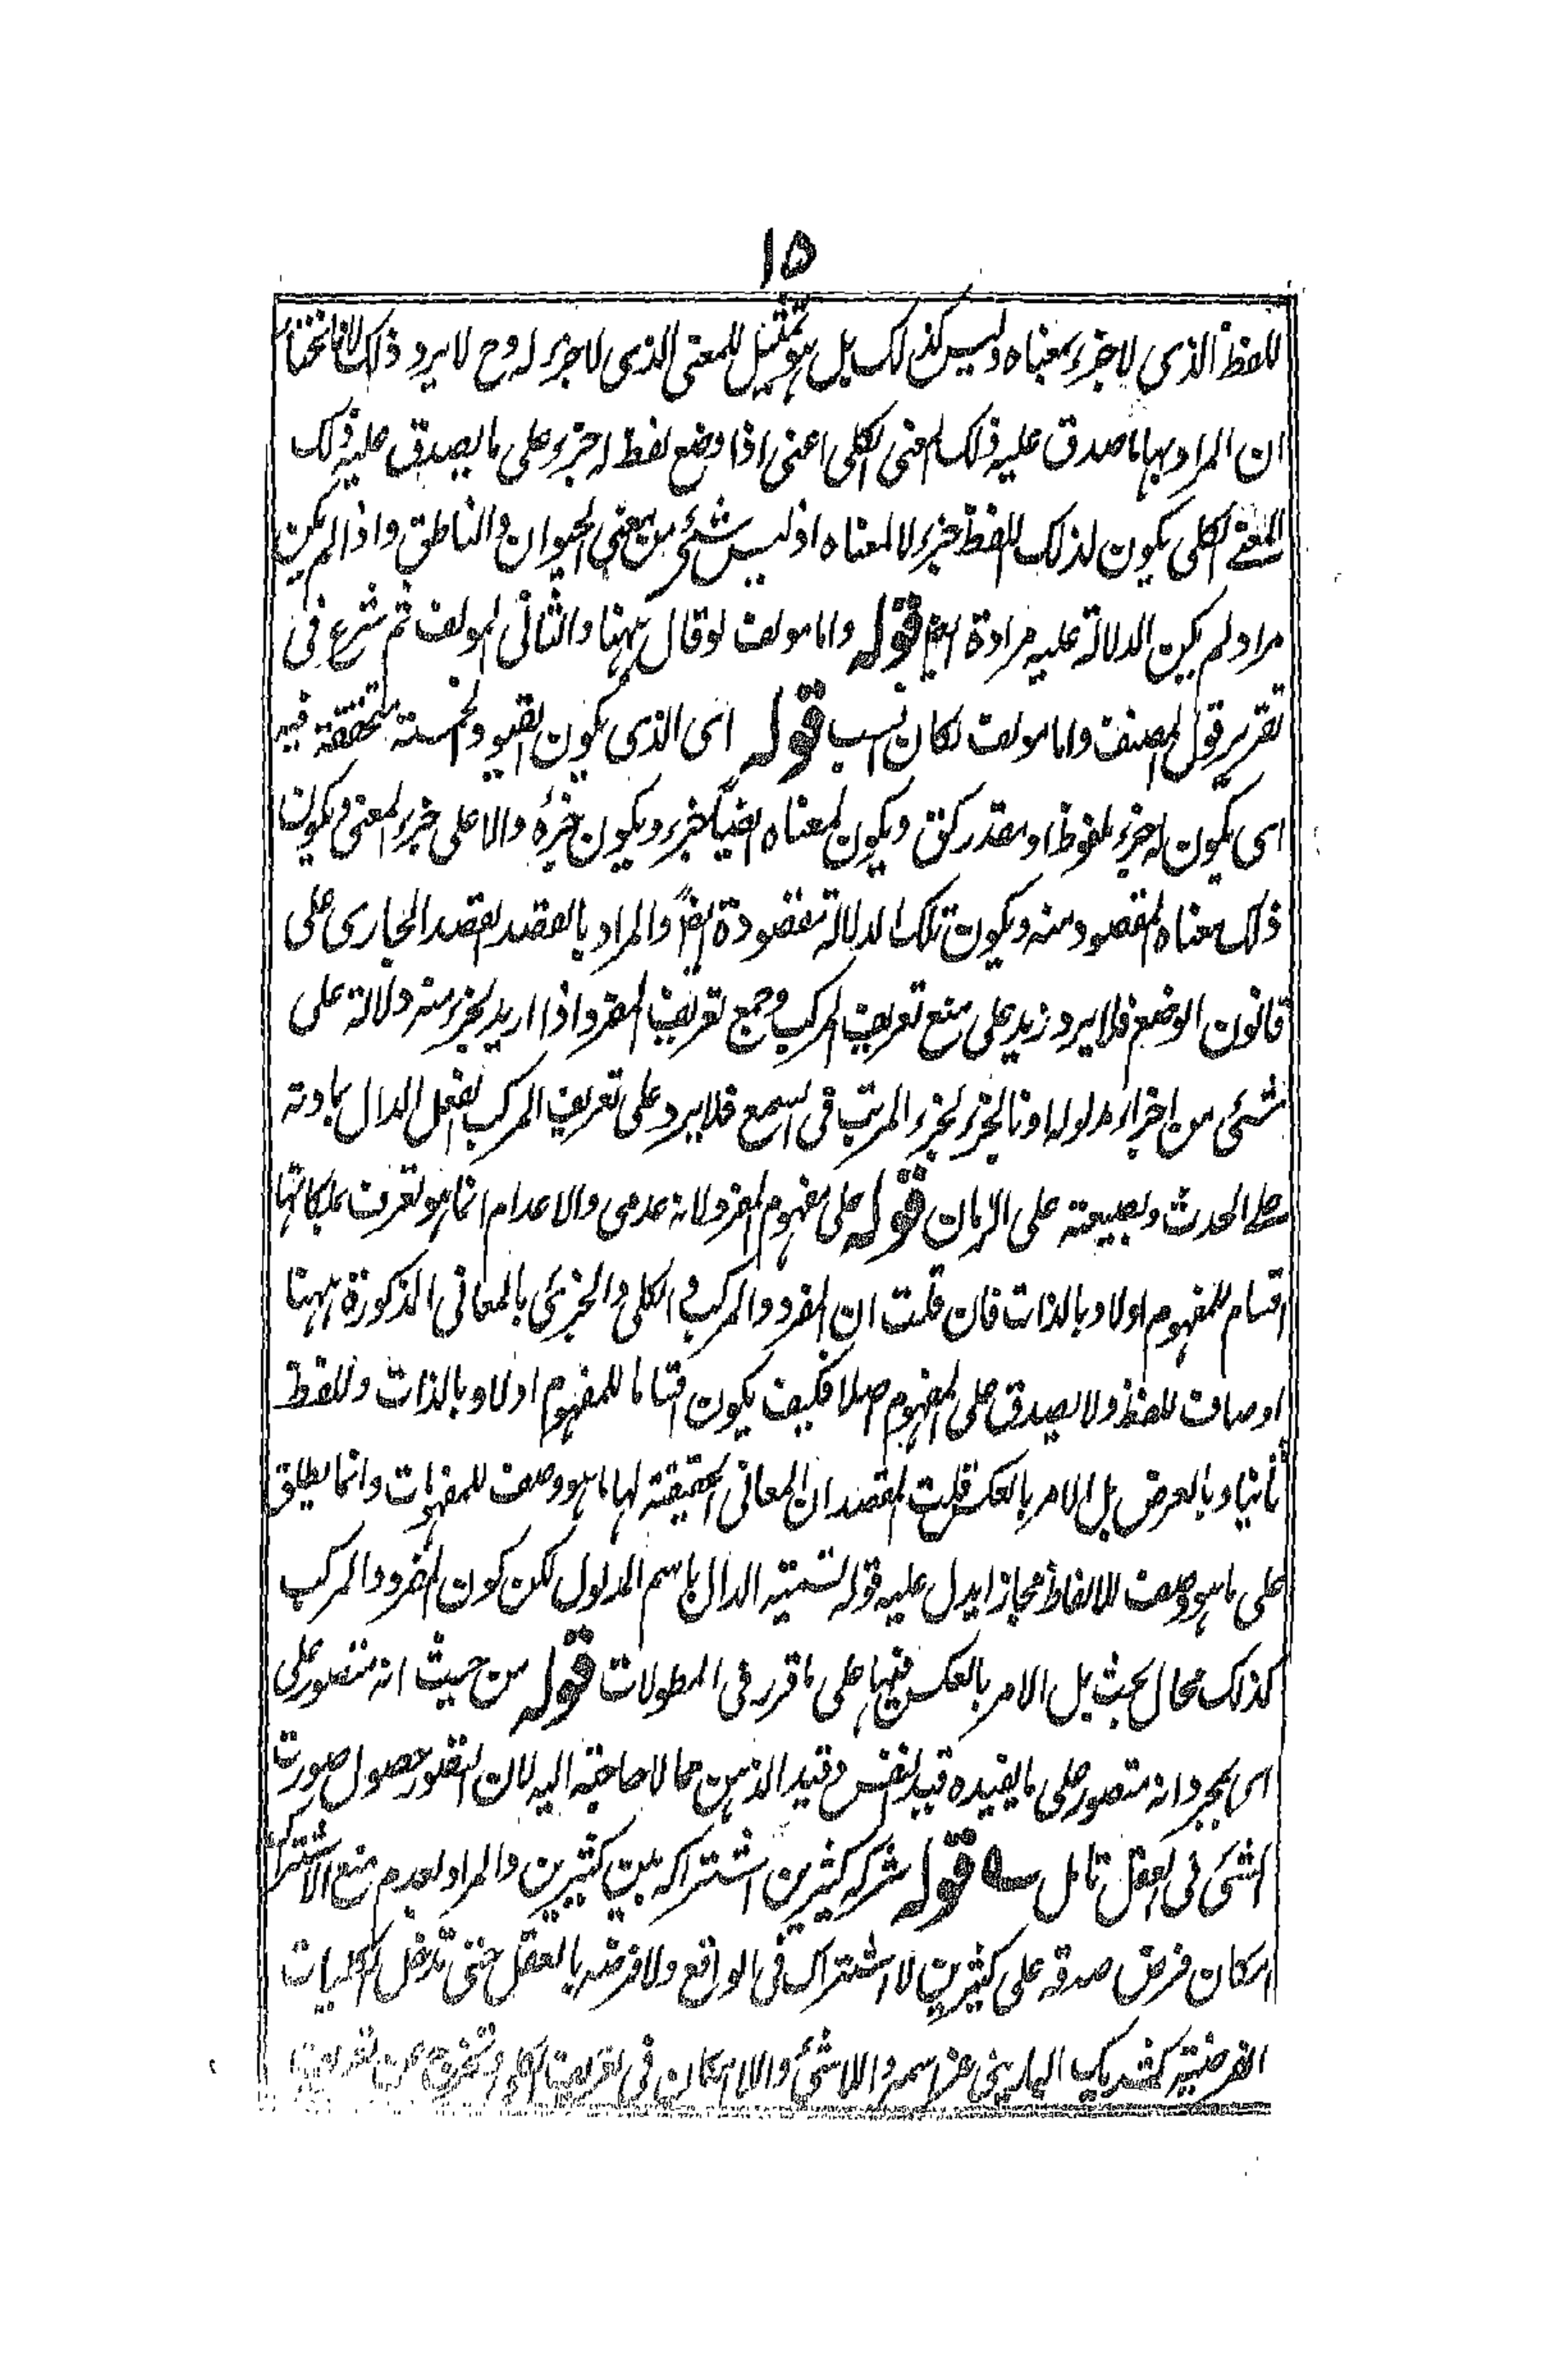 ١٥
للفظ الذى لا جزء لمعناه وليس كذلك بل هو تمثيل للمعنى الذى لا جزء له وح لا يرد ذلك لانا نختار
ان المراد بها ما صدق عليه ذلك المعنى الكلى اعنى اذا وضع لفظ له جزء على ما يصدق عليه ذلك
المعنے الكلى يكون لذلك اللفظ جزء لا لمعناه اذ ليس شئى من معنى الحيوان والناطق واذا لم يكن
مراد لم يكن الدلالة عليه مرادة ايضا قوله واما مولف لو قال ههنا والثانى المولف ثم شرع فى
تقرير قول المصنف واما مولف لكان انسب قوله اى الذى يكون القيود الخمسة متحققة فيه
اى يكون له جزء ملفوظا او مقدر كق ويكون لمعناه ايضًا جزء ويكون جزئه دالا على جزء المعنى ويكون
ذلك معناه المقصود منه ويكون تلك الدلالة مقصودة ايضًا والمراد بالقصد القصد الجارى على
قانون الوضع فلا يرد زيد على منع تعريف المركب وجمع تعريف المفرد اذا اريد بجزء منه دلالة على
شئى من اجزاء مدلوله او بالجزء الجزء المرتب فى السمع فلا يرد على تعريف المركب الفعل الدال بمادته
علے الحدث وبصيغته على الزمان قوله على مفهوم المفرد لانه عدمى والاعدام انما هو تعرف بملكاتها
اقسام للمفهوم اولا وبالذات فان قلت ان المفرد والمركب والكلى والجزئى بالمعانى المذكورة ههنا
اوصاف للفظ ولا يصدق على المفهوم اصلا فكيف يكون اقساما للمفهوم اولا وبالذات وللفظ
ثانيا وبالعرض بل الامر بالعكس قلت المقصد ان المعانى الحقيقة لها ما هو وصف للمفهومات وانما يطلق
على ما هو وصف للالفاظ مجازا يدل عليه قوله تسمية الدال باسم المدلول لكن كون المفرد والمركب
كذلك محال بحث بل الامر بالعكس فيها على ما قرر فى المطولات قوله من حيث انه متصور على
اى بمجرد انه متصور على ما يفيده قيد النفس وقيد الذهن مما لا حاجة اليه لان التصور حصول صورت
الشئ فى العقل تامل قوله شركة كثيرين اشتراكه بين كثيرين والمراد بعدم منع الاشتراك
امكان فرض صدقه على كثيرين لا اشتراك فى الواقع ولا فرضه بالعقل حتى تدخل الكليات
الفرضية كشريك البارى عز اسمه واللاشئ واللاامكان فى تعريف الكلى وتخرج عن تعريف